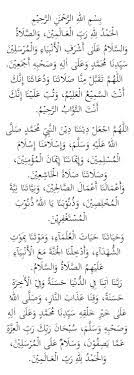 بِسْمِ اللهِ الرَّحْمٰنِ الرَّحِيْمِ
الْحَمْدُ لِلّٰهِ رَبِّ الْعَالَمِيْنَ، وَالصَّلَاةُ
وَالسَّلَامُ عَلَى أَشْرَفِ الْأَنْبِيَاءِ وَالْمُرْسَلِيْنَ
سَيِّدِنَا مُحَمَّدٍ وَعَلَى آلِهِ وَصَحْبِهِ أَجْمَعِيْنَ.
اللَّهُمَّ تَقَبَّلْ مِنَّا صَلَاتَنَا وَدُعَاءَنَا إِنَّكَ
أَنْتَ السَّمِيْعُ الْعَلِيْمُ، وَتُبْ عَلَيْنَا إِنَّكَ
أَنْتَ التَّوَّابُ الرَّحِيْمُ.
اللَّهُمَّ اجْعَلْ دِيْنَنَا دِيْنَ النَّبِيِّ مُحَمَّدٍ صَلَّى
اللهُ عَلَيْهِ وَسَلَّمَ، وَإِسْلَامَنَا إِسْلَامَ
الْمُسْلِمِيْنَ، وَإِيْمَانَنَا إِيْمَانَ الْمُؤْمِنِيْنَ،
وَأَعْمَالَنَا أَعْمَالَ الصَّالِحِيْنَ، وَنِيَّاتَنَا نِيَّةَ
الْمُخْلِصِيْنَ، وَذُنُوْبَنَا يَا اللهُ ذُنُوْبَ
الْمُسْتَغْفِرِيْنَ.
وَحَيَاتَنَا حَيَاتَ الْعُلَمَاءِ، وَمَوْتَنَا مَوْتَ
الشُّهَدَاءِ، وَأَدْخِلْنَا الْجَنَّةَ مَعَ الْأَنْبِيَاءِ
عَلَيْهِمُ الصَّلَاةُ وَالسَّلَامُ.
رَبَّنَا آتِنَا فِي الدُّنْيَا حَسَنَةً وَفِي الْآخِرَةِ
حَسَنَةً، وَقِنَا عَذَابَ النَّارِ، وَصَلَّى اللهُ
عَلَى خَيْرِ خَلْقِهِ سَيِّدِنَا مُحَمَّدٍ وَعَلَى آلِهِ
وَصَحْبِهِ وَسَلَّمَ، سُبْحَانَ رَبِّكَ رَبِّ الْعِزَّةِ
عَمَّا يَصِفُوْنَ، وَسَلَامٌ عَلَى الْمُرْسَلِيْنَ،
وَالْحَمْدُ لِلّٰهِ رَبِّ الْعَالَمِيْنَ.